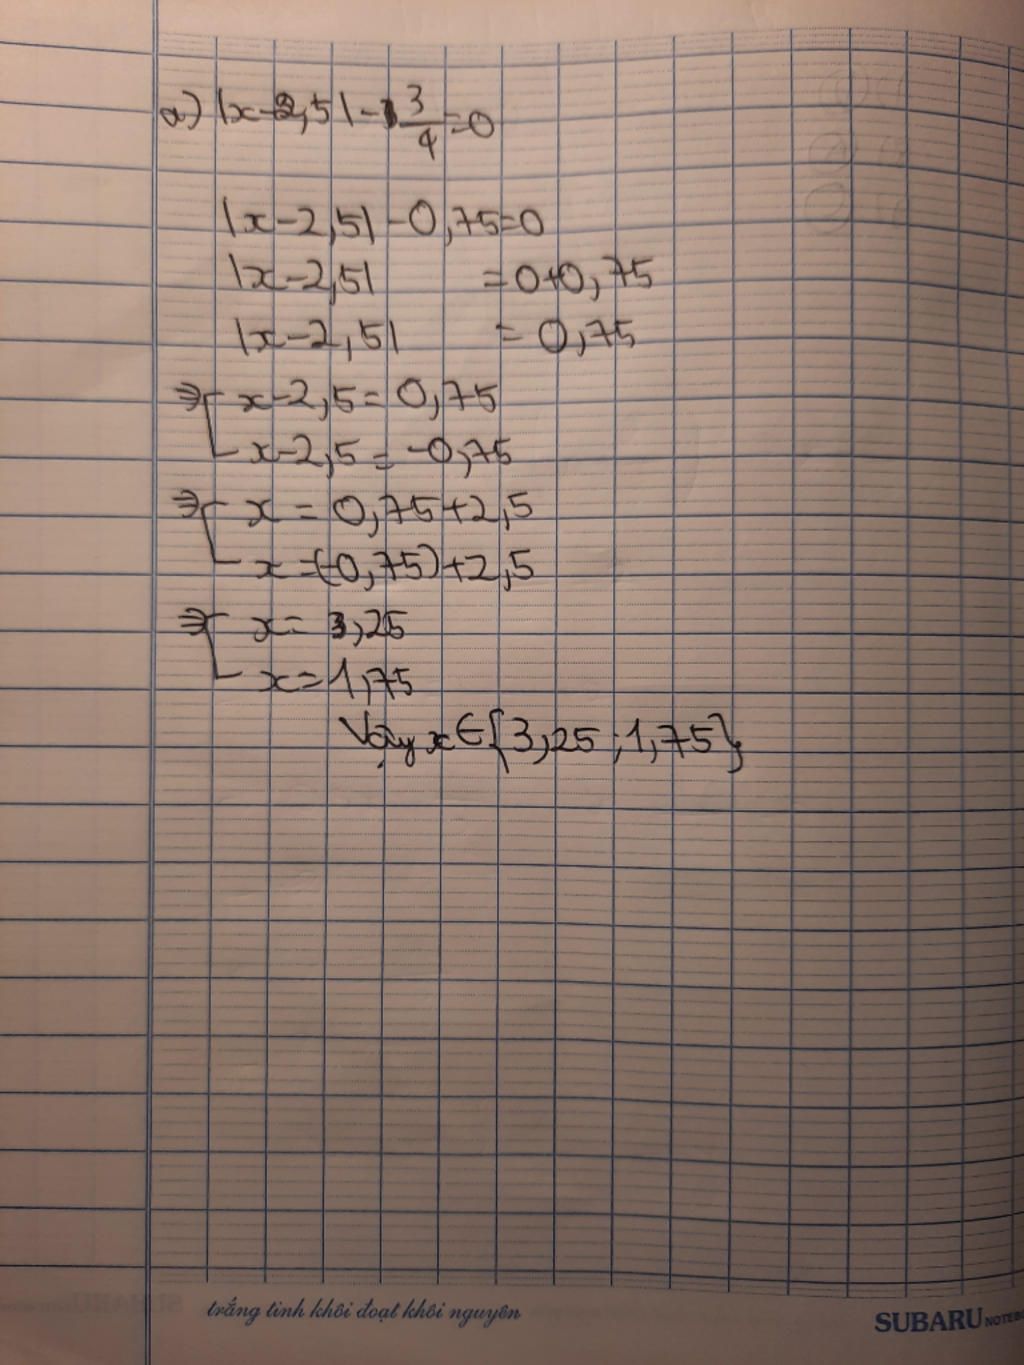 a) |x-2,5|-3/4=0
|x-2,5|-0,75=0
|x-2,5| =0+0,75
|x-2,5| = 0,75
⇒[ x-2,5= 0,75
x-2,5= -0,75
⇒[ x = 0,75+2,5
x =(-0,75)+2,5
⇒[ x= 3,25
x=1,75
Vậy x∈{3,25;1,75}
trắng tinh khôi đoạt khôi nguyên
SUBARU